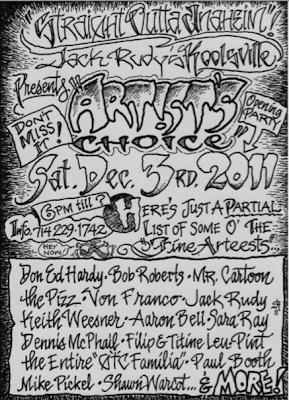 "Straight Outta Anaheim"!
Jack Rudy's Koolsville
Presents
"ARTIST'S
CHOICE"
DON'T MISS IT!
Opening PARTY
Sat. Dec. 3RD. 2011
6PM till?
Info. 714.229.1742
HEY NOW!
HERE'S JUST A PARTIAL
LIST OF SOME O' THE
"Fine Arteests...
Don Ed Hardy · Bob Roberts · MR. Cartoon
the Pizz · Von Franco · Jack Rudy
Keith Weesner · Aaron Bell · Sara Ray
Dennis McPhail · Filip & Titine Leu · Pint
the Entire "Familia" · Paul Booth
Mike Pickel · Shawn Warcot... & MORE!